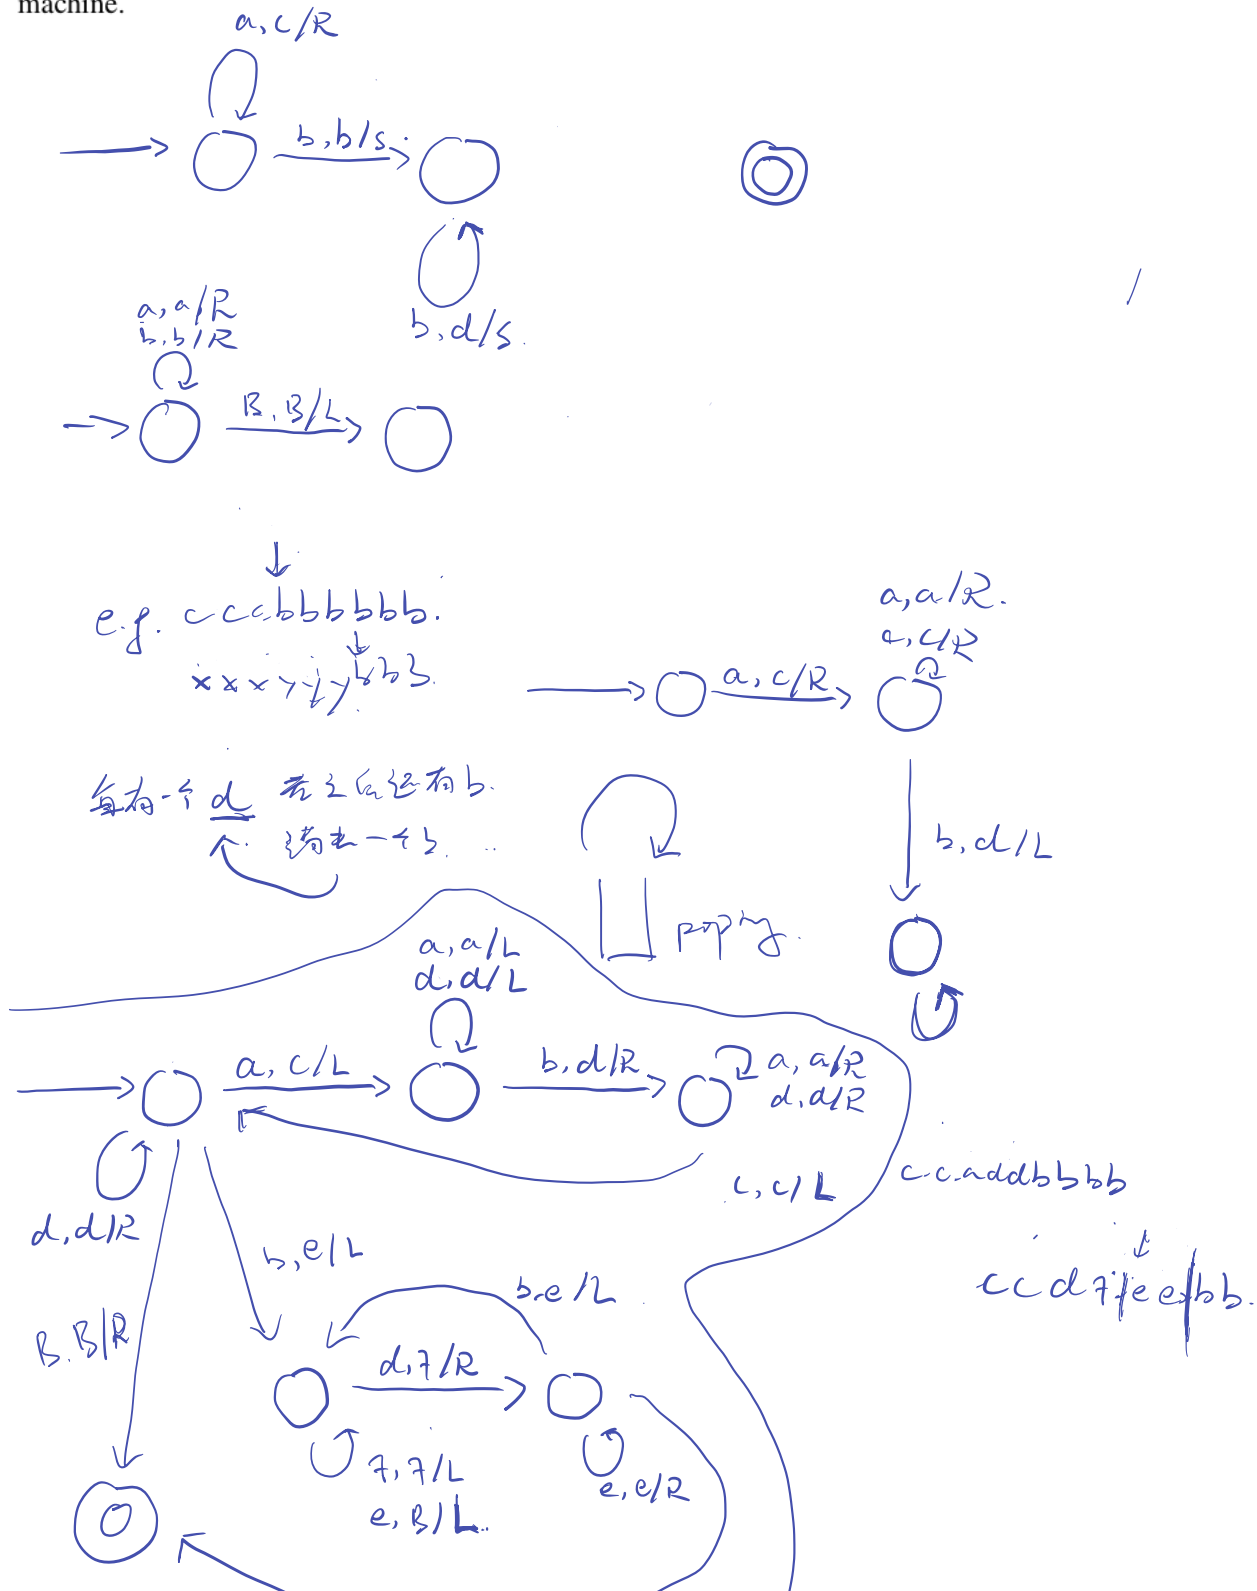 machine.
a, c/R
b, b/s.
b, d/s.
a, a/R
b, b/R
B, B/L
e.g. cccbbbbbb.
xxxyyybbb.
a, a/R.
c, c/R
a, c/R
每有一个 d 若之后还有b.
消去一个b.
b, d/L
poping.
a, a/L
d, d/L
a, c/L
b, d/R
a, a/R
d, d/R
c, c/L
ccaddbbbb
d, d/R
b, e/L
b, e/L
B, B/R
d, 7/R
7, 7/L
e, B/L
e, e/R